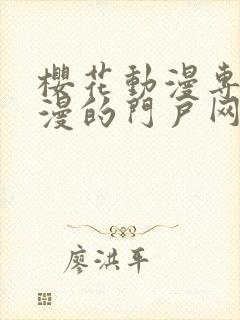 櫻花動漫専
漫的門戶网
廖洪平